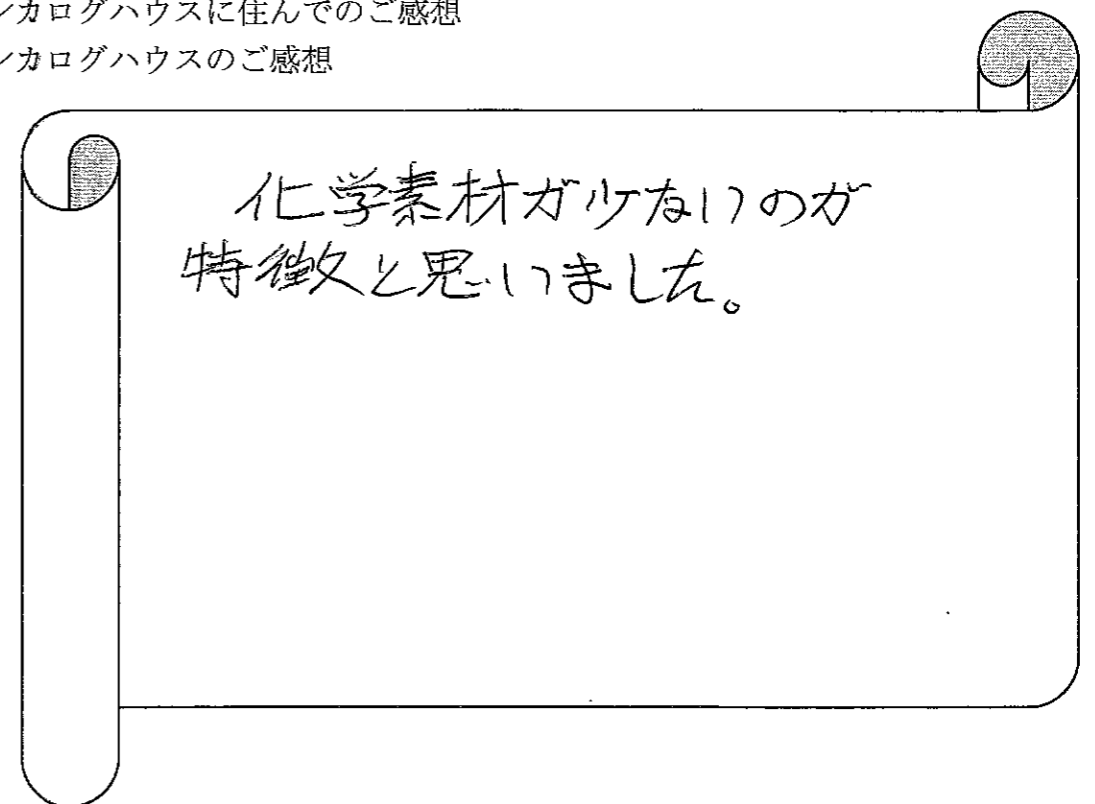 ンカログハウスに住んでのご感想
ンカログハウスのご感想
化学素材が少ないのが
特徴と思いました。